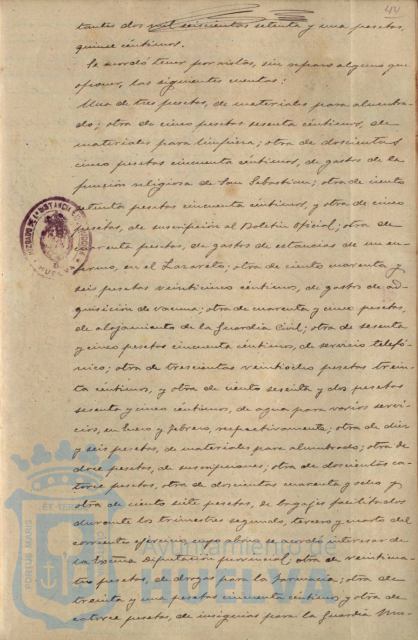 44
tantes dos mil seiscientas setenta y una pesetas,
quince céntimos.
Se acordó tener por vistas, sin reparo alguno que
oponer, las siguientes cuentas:
Una de tres pesetas, de materiales para alumbra-
do; otra de cinco pesetas sesenta céntimos, de
materiales para limpieza; otra de doscientas
cinco pesetas cincuenta céntimos, de gastos de la
función religiosa de San Sebastian; otra de ciento
setenta pesetas cincuenta céntimos, y otra de cinco
pesetas, de suscripción al Boletin Oficial; otra de
pesetas, de gastos de estancias de un en-
fermo, en el Lazareto; otra de ciento cuarenta y
seis pesetas veinticinco céntimos, de gastos de ad-
quisición de vacuna; otra de cuarenta y cinco pesetas,
de alojamiento de la Guardia Civil; otra de sesenta
y cinco pesetas cincuenta céntimos, de servicio telefó-
nico; otra de trescientas veintiocho pesetas trein-
ta céntimos, y otra de ciento sesenta y dos pesetas
sesenta y cinco céntimos, de agua para varios servi-
cios, en Enero y Febrero, respectivamente; otra de diez
y seis pesetas, de materiales para alumbrado; otra de
doce pesetas, de suscripciones; otra de doscientas ca-
torce pesetas, otra de doscientas cuarenta y seis y
otra de ciento siete pesetas, de bagajes facilitados
durante los trimestres segundo, tercero y cuarto del
corriente ejercicio, cuyo abono se acordó interesar de
la Excma Diputación provincial; otra de veinticua-
tro pesetas, de drogas para la farmacia; otra de
treinta y una pesetas cincuenta céntimos y otra de
catorce pesetas, de insignias para la Guardia Mu-
PORTUS MARIS
ET TERRAE
Ayuntamiento de
HUELVA